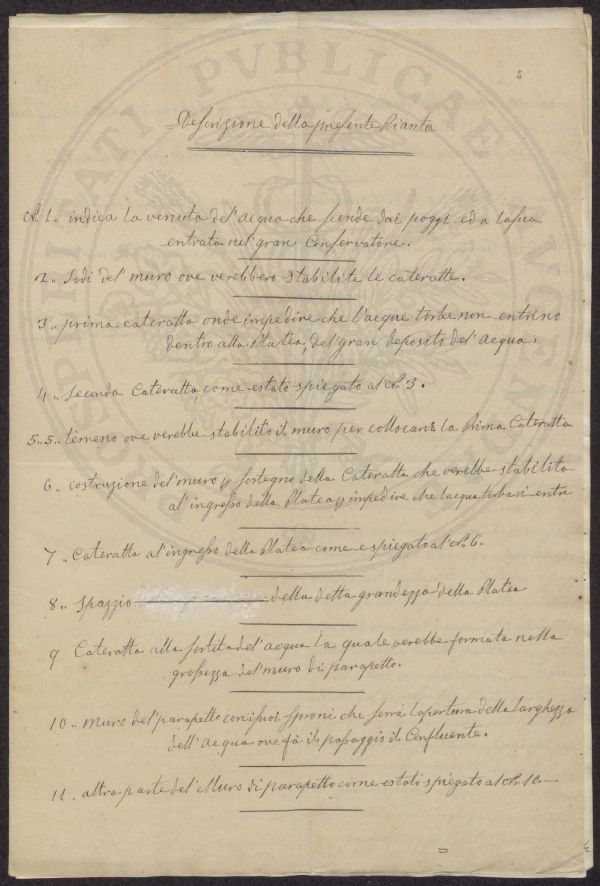 Descrizione della presente Pianta
N. 1. indica la venuta del'acqua che scende dai poggi ed a la sua
entrata nel'gran Conservatore.
2.. Sodi del'muro ove verebbero stabilite le cateratte.
3.. prima cateratta onde impedire che l'acque torbe non entrino
dentro alla Platea, del gran deposito del'acqua.
4.. Seconda Cateratta, come estato spiegato al N. 3.
5..5.. terreno ove verebbe stabilito il muro per collocare la Prima Cateratta
6.. costruzione del'muro p sostegno della Cateratta che verebbe stabilita
al'ingresso della Platea p impedire che l'acqua torba vi entre
7.. Cateratta al'ingresso della Platea come e spiegato al N. 6..
8.. Spazzio della detta grandezza della Platea
9 Cateratta alla sortita del'acqua la quale verebbe formata nella
grossezza del'muro di parapetto.
10.. muro del'parapetto con i suoi sproni che serra l'apertura della larghezza
dell'acqua ove fà il passaggio il Confluente.
11.. altra parte del'Muro di parapetto come estato spiegato al N. 10.
PROSPERITATI PVBLICAE